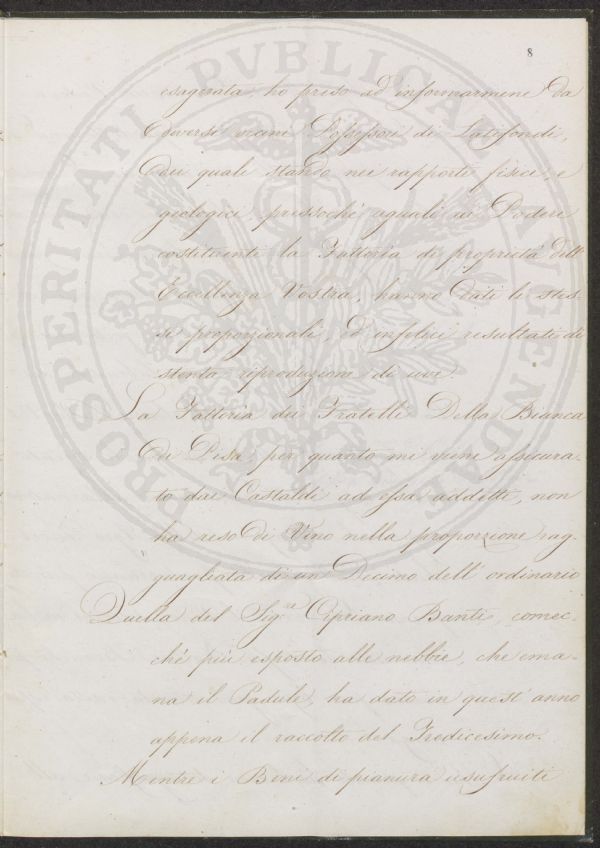 8
esagerata, ho preso ad informarmene da
diversi vicini Possessori di Latifondi,
dei quali stando nei rapporti fisici, e
geologici pressochè uguali ai Poderi
costituenti la Fattoria di proprietà dell'
Eccellenza Vostra, hanno dati li stes-
si proporzionali, ed infelici resultati di
stenta reproduzione di uve.
La Fattoria dei Fratelli Della Bianca
di Pisa per quanto mi viene assicura-
to dai Castaldi ad essa addetti, non
ha reso di Vino nella proporzione rag-
guagliata di un Decimo dell' ordinario
Quella del Sig.re Cipriano Banti, comec-
chè più esposto alle nebbie, che ema-
na il Padule, ha dato in quest' anno
appena il raccolto del Tredicesimo.
Mentre i Beni di pianura usufruiti
PROSPERITATI PVBLICAE AVGENDAE